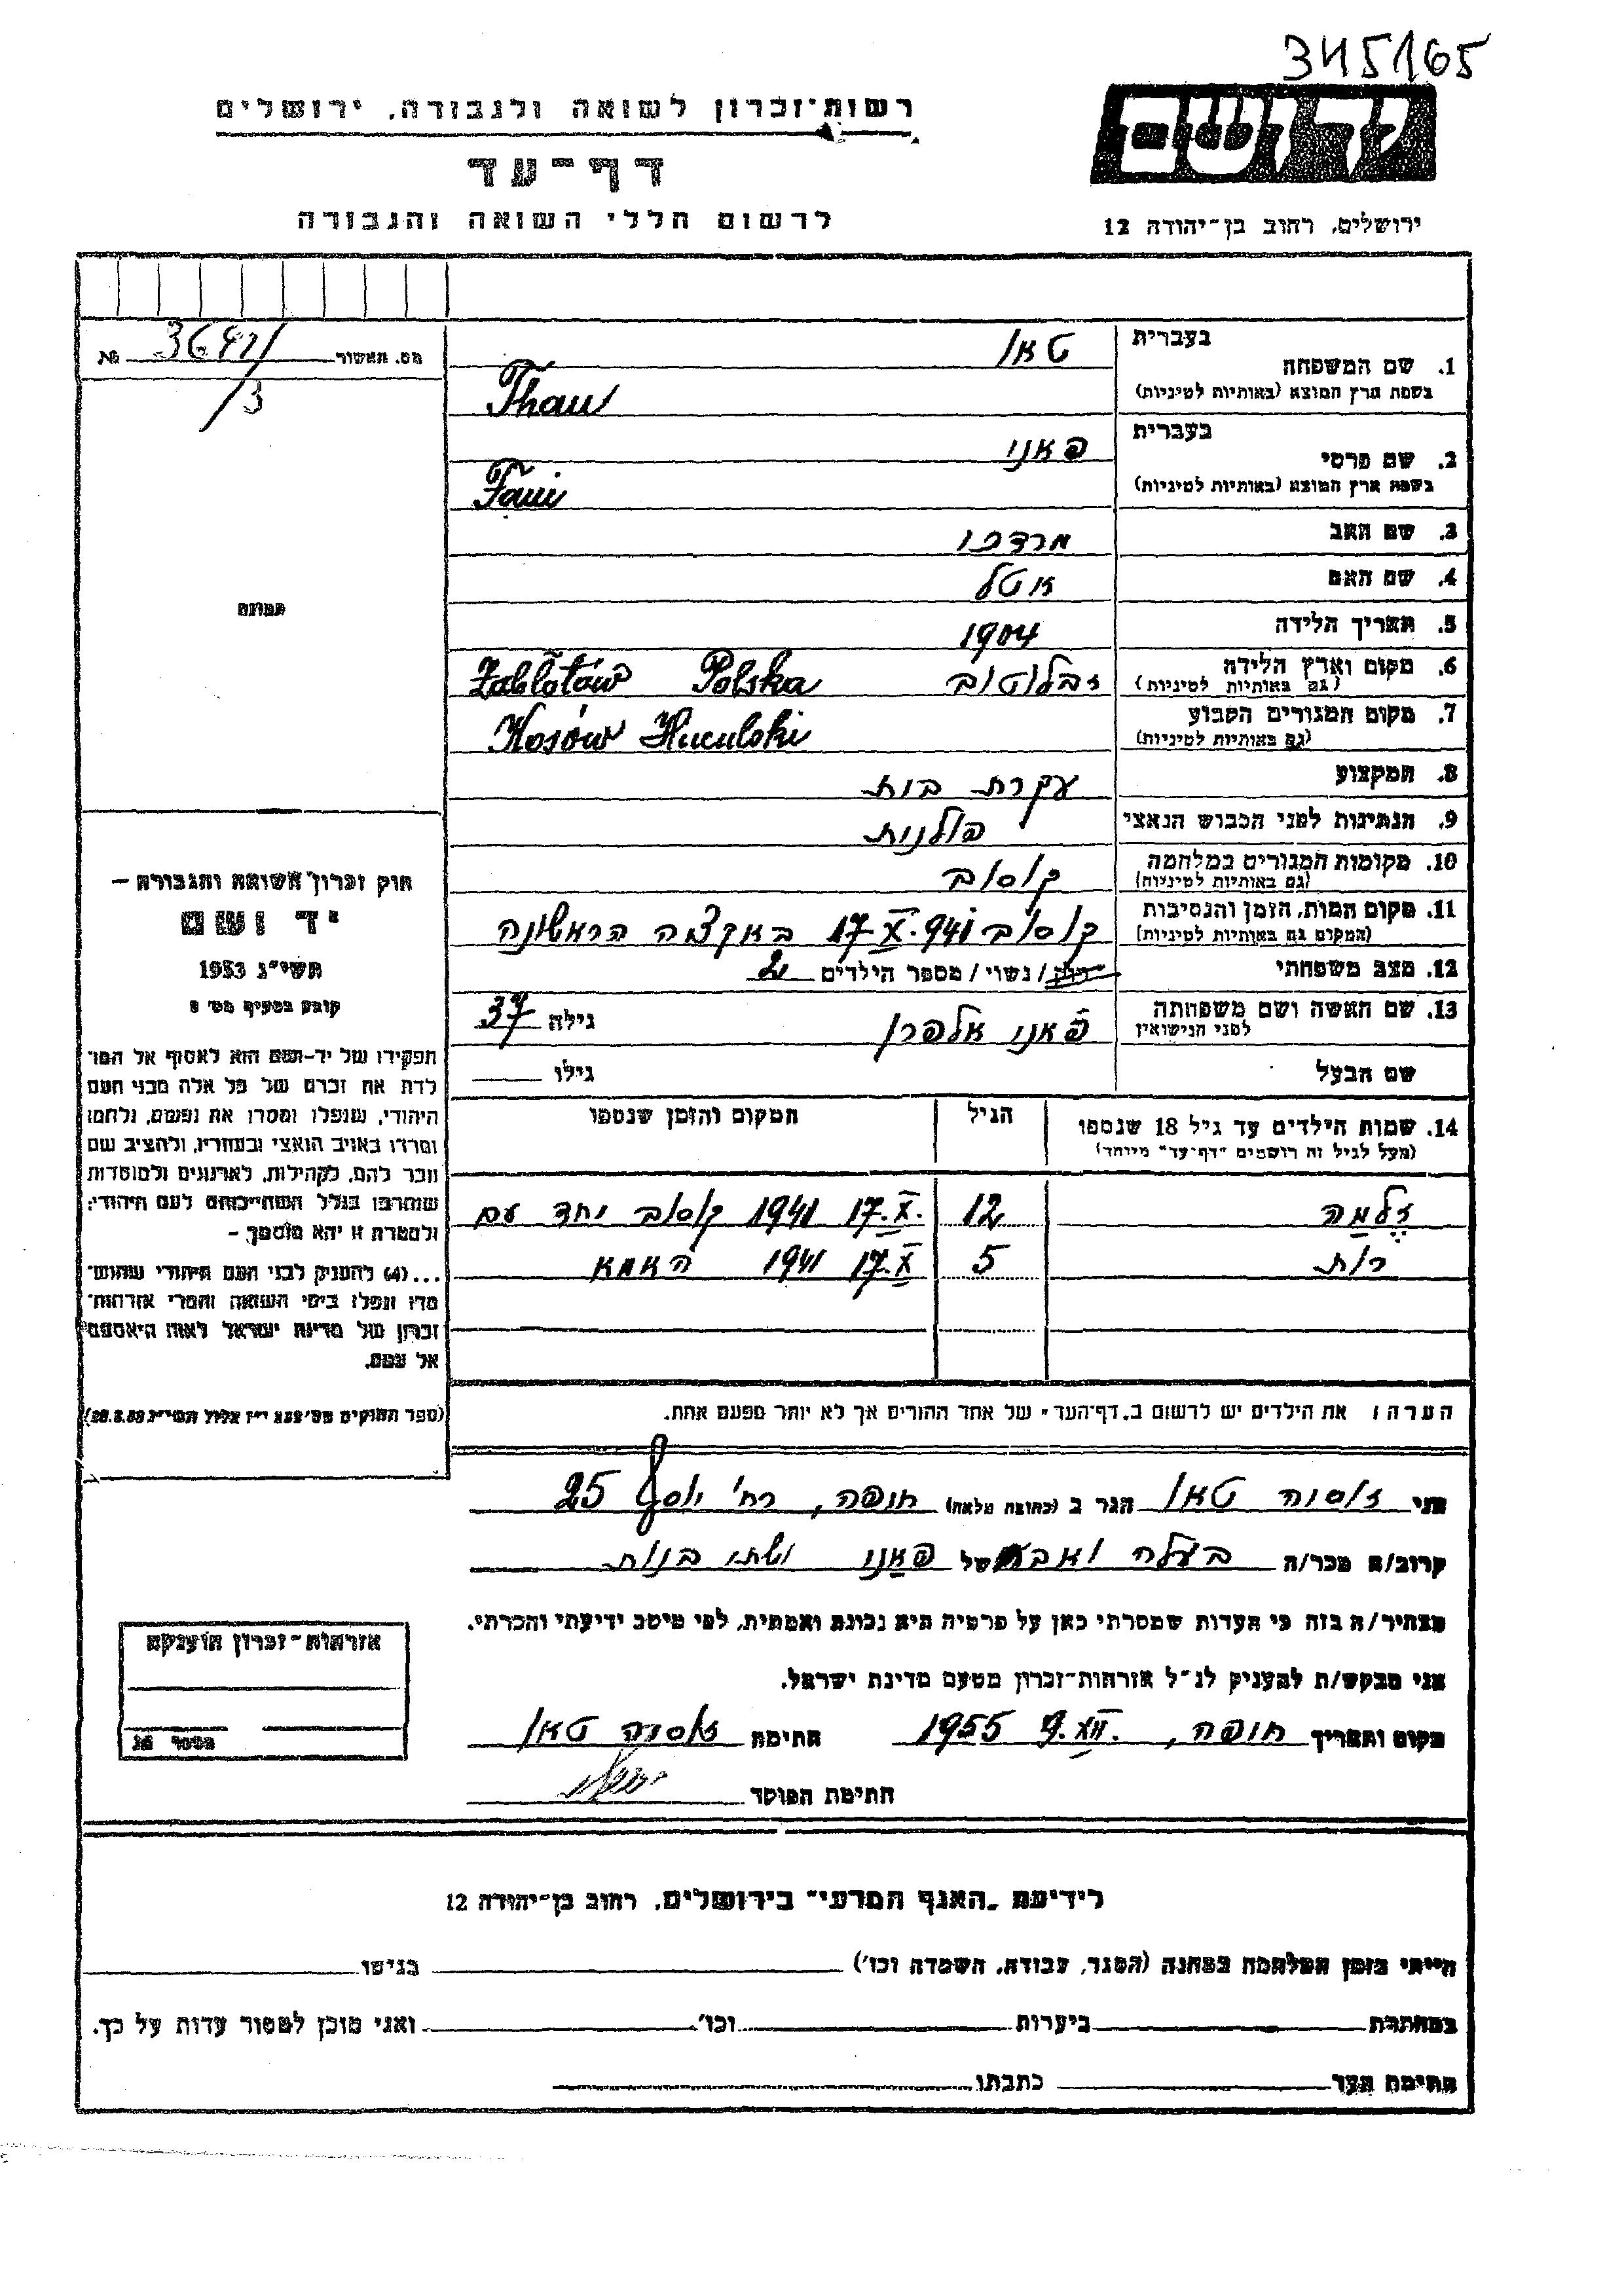 345165
רשות־זכרון לשואה ולגבורה, ירושלים
ידושם
דף־עד
לרשום חללי השואה והגבורה
ירושלים, רחוב בן־יהודה 12
מס. האשור 36471 №
/3
בעברית
1. שם המשפחה טאו
בשפת ארץ המוצא (באותיות לטיניות) Thau
בעברית
2. שם פרטי פאני
בשפת ארץ המוצא (באותיות לטיניות) Fani
3. שם האב מרדכי
4. שם האם אטל
תמונה
5. תאריך הלידה 1904
6. מקום וארץ הלידה זבלוטוב Zabłotów Polska
(גם באותיות לטיניות)
7. מקום המגורים הקבוע Kosów Huculski
(גם באותיות לטיניות)
8. המקצוע עקרת בית
9. הנתינות לפני הכבוש הנאצי פולנית
10. מקומות המגורים במלחמה קוסוב
(גם באותיות לטיניות)
11. מקום המות, הזמן והנסיבות קוסוב 17.X.941 באקציה הראשונה
(המקום גם באותיות לטיניות)
12. מצב משפחתי רוק / נשוי / מספר הילדים 2
13. שם האשה ושם משפחתה פאני אלפרן גילה 37
לפני הנישואין
שם הבעל גילו
חוק זכרון השואה והגבורה –
יד ושם
תשי״ג 1953
קובע בסעיף מס׳ 2
תפקידו של יד־ושם הוא לאסוף אל המו־
לדת את זכרם של כל אלה מבני העם
היהודי, שנפלו ומסרו את נפשם, נלחמו
ומרדו באויב הנאצי ובעוזריו, ולהציב שם
וזכר להם, לקהילות, לארגונים ולמוסדות
שנחרבו בגלל השתייכותם לעם היהודי;
ולמטרת זו יהא מוסמך, –
...(4) להעניק לבני העם היהודי שהוש־
מדו ונפלו בימי השואה והמרי אזרחות־
זכרון של מדינת ישראל לאות היאספם
אל עמם.
14. שמות הילדים עד גיל 18 שנספו הגיל המקום והזמן שנספו
(מעל לגיל זה רושמים "דף־עד" מיוחד)
זלמה 12 17.X. 1941 קוסוב יחד עם
רות 5 17.X 1941 האמא
הערה: את הילדים יש לרשום ב„דף־העד״ של אחד ההורים אך לא יותר מפעם אחת.
אני זיסיה טאו הגר ב (כתובת מלאה) חיפה, רח׳ יוסף 25
קרוב/ה מכר/ה בעלה ואבא של פאני ושתי בנות
מצהיר/ה בזה כי העדות שמסרתי כאן על פרטיה היא נכונה ואמתית, לפי מיטב ידיעתי והכרתי.
אני מבקש/ת להעניק לנ״ל אזרחות־זכרון מטעם מדינת ישראל.
מקום ותאריך חיפה, 9.XII. 1955 חתימה זיסיה טאו
חתימת הפוקד
אזרחות־זכרון הוענקה
מספר
לידיעת „האגף המדעי״ בירושלים, רחוב בן־יהודה 12
הייתי בזמן המלחמה במחנה (הסגר, עבודה, השמדה וכו׳) בגיטו
במחתרת ביערות וכו׳ ואני מוכן למסור עדות על כך.
חתימת העד כתבתו